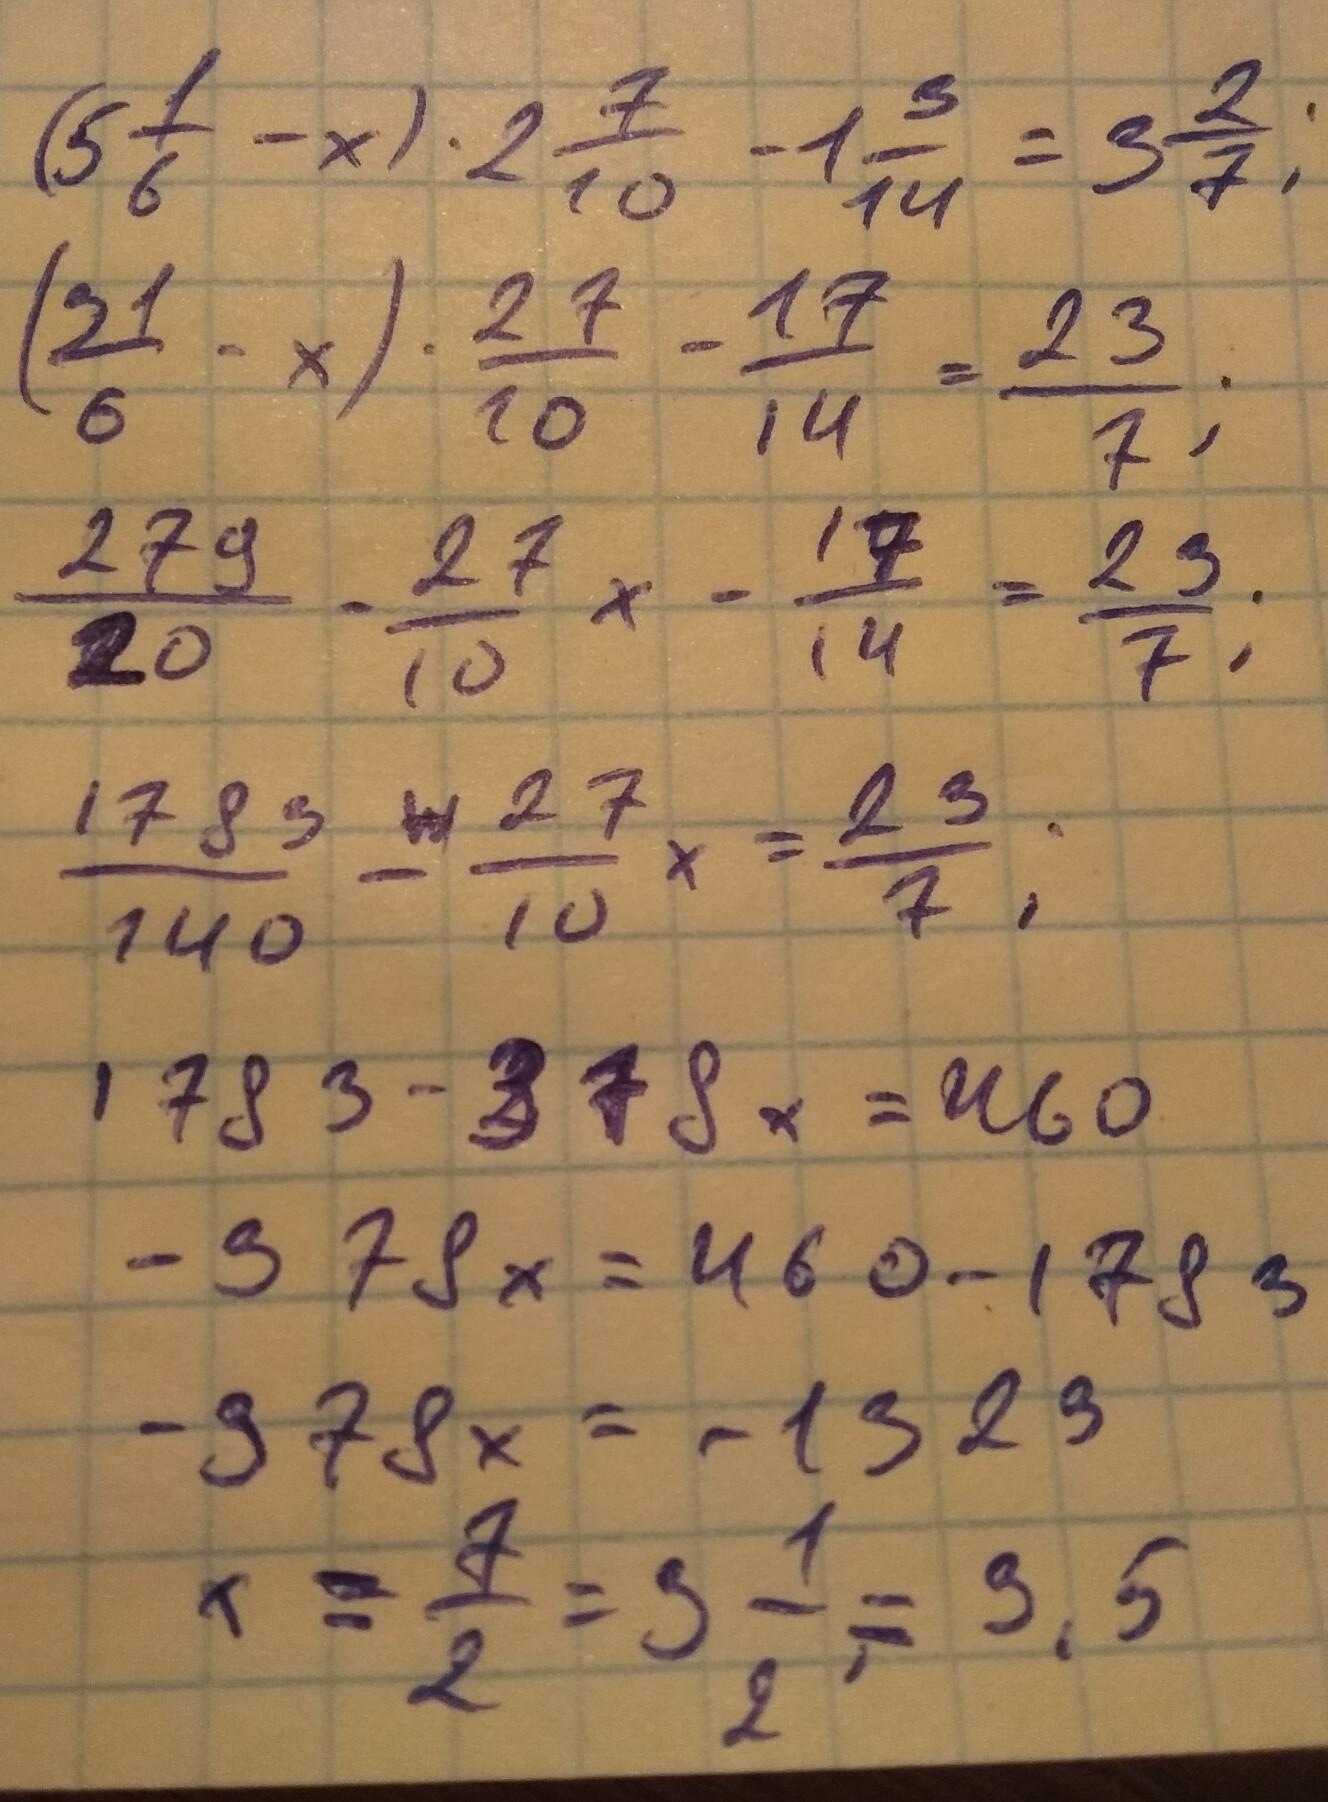 (5 1/6 - x) · 2 7/10 - 1 3/14 = 3 2/7;
(31/6 - x) · 27/10 - 17/14 = 23/7;
279/20 - 27/10 x - 17/14 = 23/7;
1783/140 - 27/10 x = 23/7;
1783 - 378x = 460
-378x = 460 - 1783
-378x = -1323
x = 7/2 = 3 1/2; = 3,5